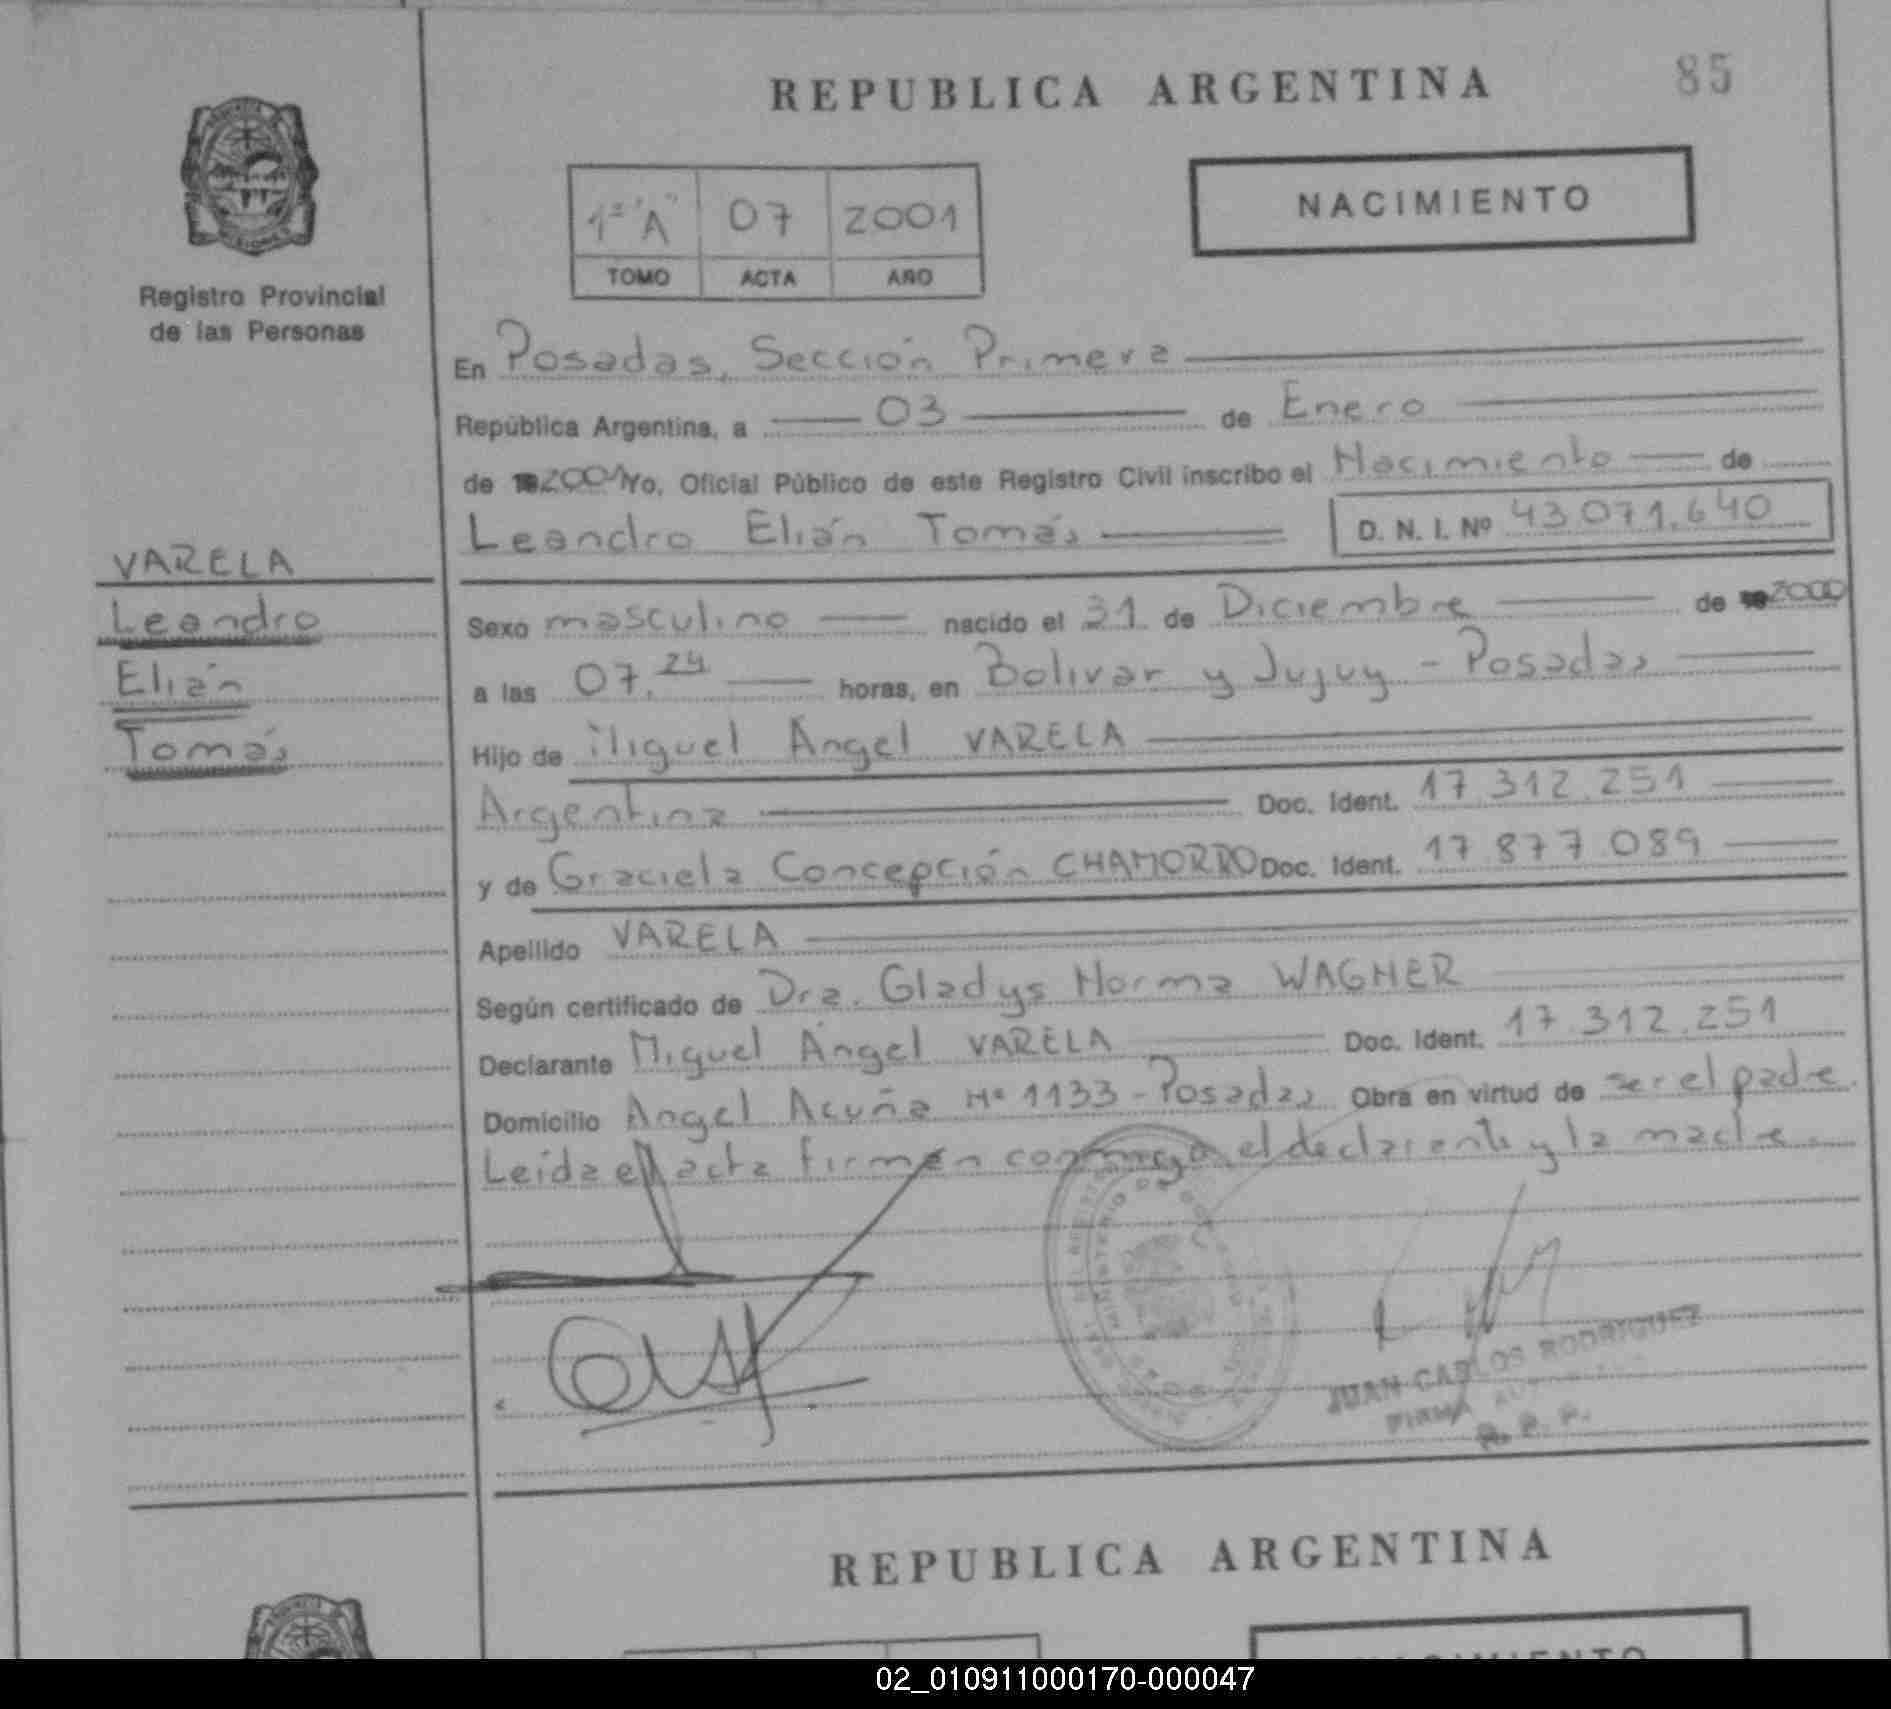 REPUBLICA ARGENTINA
85
1ª "A" 07 2001
TOMO ACTA AÑO
NACIMIENTO
Registro Provincial
de las Personas
En Posadas, Sección Primera
República Argentina, a 03 de Enero
de 2001 Yo, Oficial Público de este Registro Civil inscribo el Nacimiento de
Leandro Elián Tomás D. N. I. Nº 43.071.640
VARELA
Leandro
Elián
Tomás
Sexo masculino nacido el 31 de Diciembre de 2000
a las 07.24 horas, en Bolivar y Jujuy - Posadas
Hijo de Miguel Angel VARELA
Argentina Doc. Ident. 17.312.251
y de Graciela Concepción CHAMORRO Doc. Ident. 17.877.089
Apellido VARELA
Según certificado de Dra. Gladys Norma WAGNER
Declarante Miguel Angel VARELA Doc. Ident. 17.312.251
Domicilio Angel Acuña Nº 1133 - Posadas Obra en virtud de ser el padre.
Leida el acta firman conmigo el declarante y la madre.
JUAN CARLOS RODRIGUEZ
FIRMA
R. P. P.
REPUBLICA ARGENTINA
NACIMIENTO
02_010911000170-000047